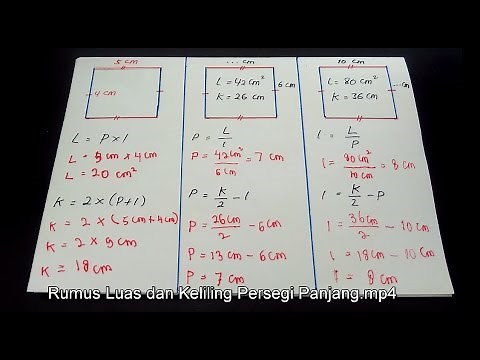 5 cm
4 cm
L = P x l
L = 5 cm x 4 cm
L = 20 cm²
K = 2 x (P+l)
K = 2 x (5 cm + 4 cm)
K = 2 x 9 cm
K = 18 cm
... cm
L = 42 cm²
K = 26 cm
6 cm
P = L/l
P = 42 cm²/6 cm = 7 cm
P = K/2 - l
P = 26 cm/2 - 6 cm
P = 13 cm - 6 cm
P = 7 cm
10 cm
L = 80 cm²
K = 36 cm
... cm
l = L/P
l = 80 cm²/10 cm = 8 cm
l = K/2 - P
l = 36 cm/2 - 10 cm
l = 18 cm - 10 cm
l = 8 cm
Rumus Luas dan Keliling Persegi Panjang.mp4